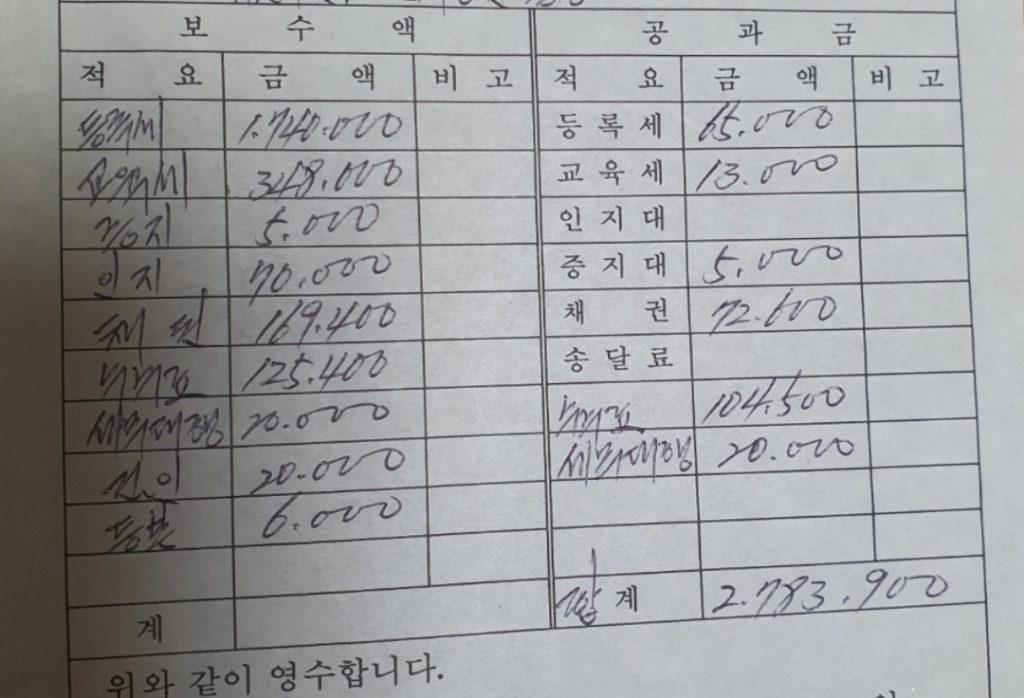 보 수 액 공 과 금
적 요 금 액 비 고 적 요 금 액 비 고
등록세 1.740.000 등 록 세 65.000
교육세 348.000 교 육 세 13.000
증지 5.000 인 지 대
인지 70.000 증 지 대 5.000
채권 169.400 채 권 72.600
누진료 125.400 송 달 료
세무대행 20.000 누진료 104.500
20.000 세무대행 20.000
등본 6.000
계 합 계 2.783.900
위와 같이 영수합니다.